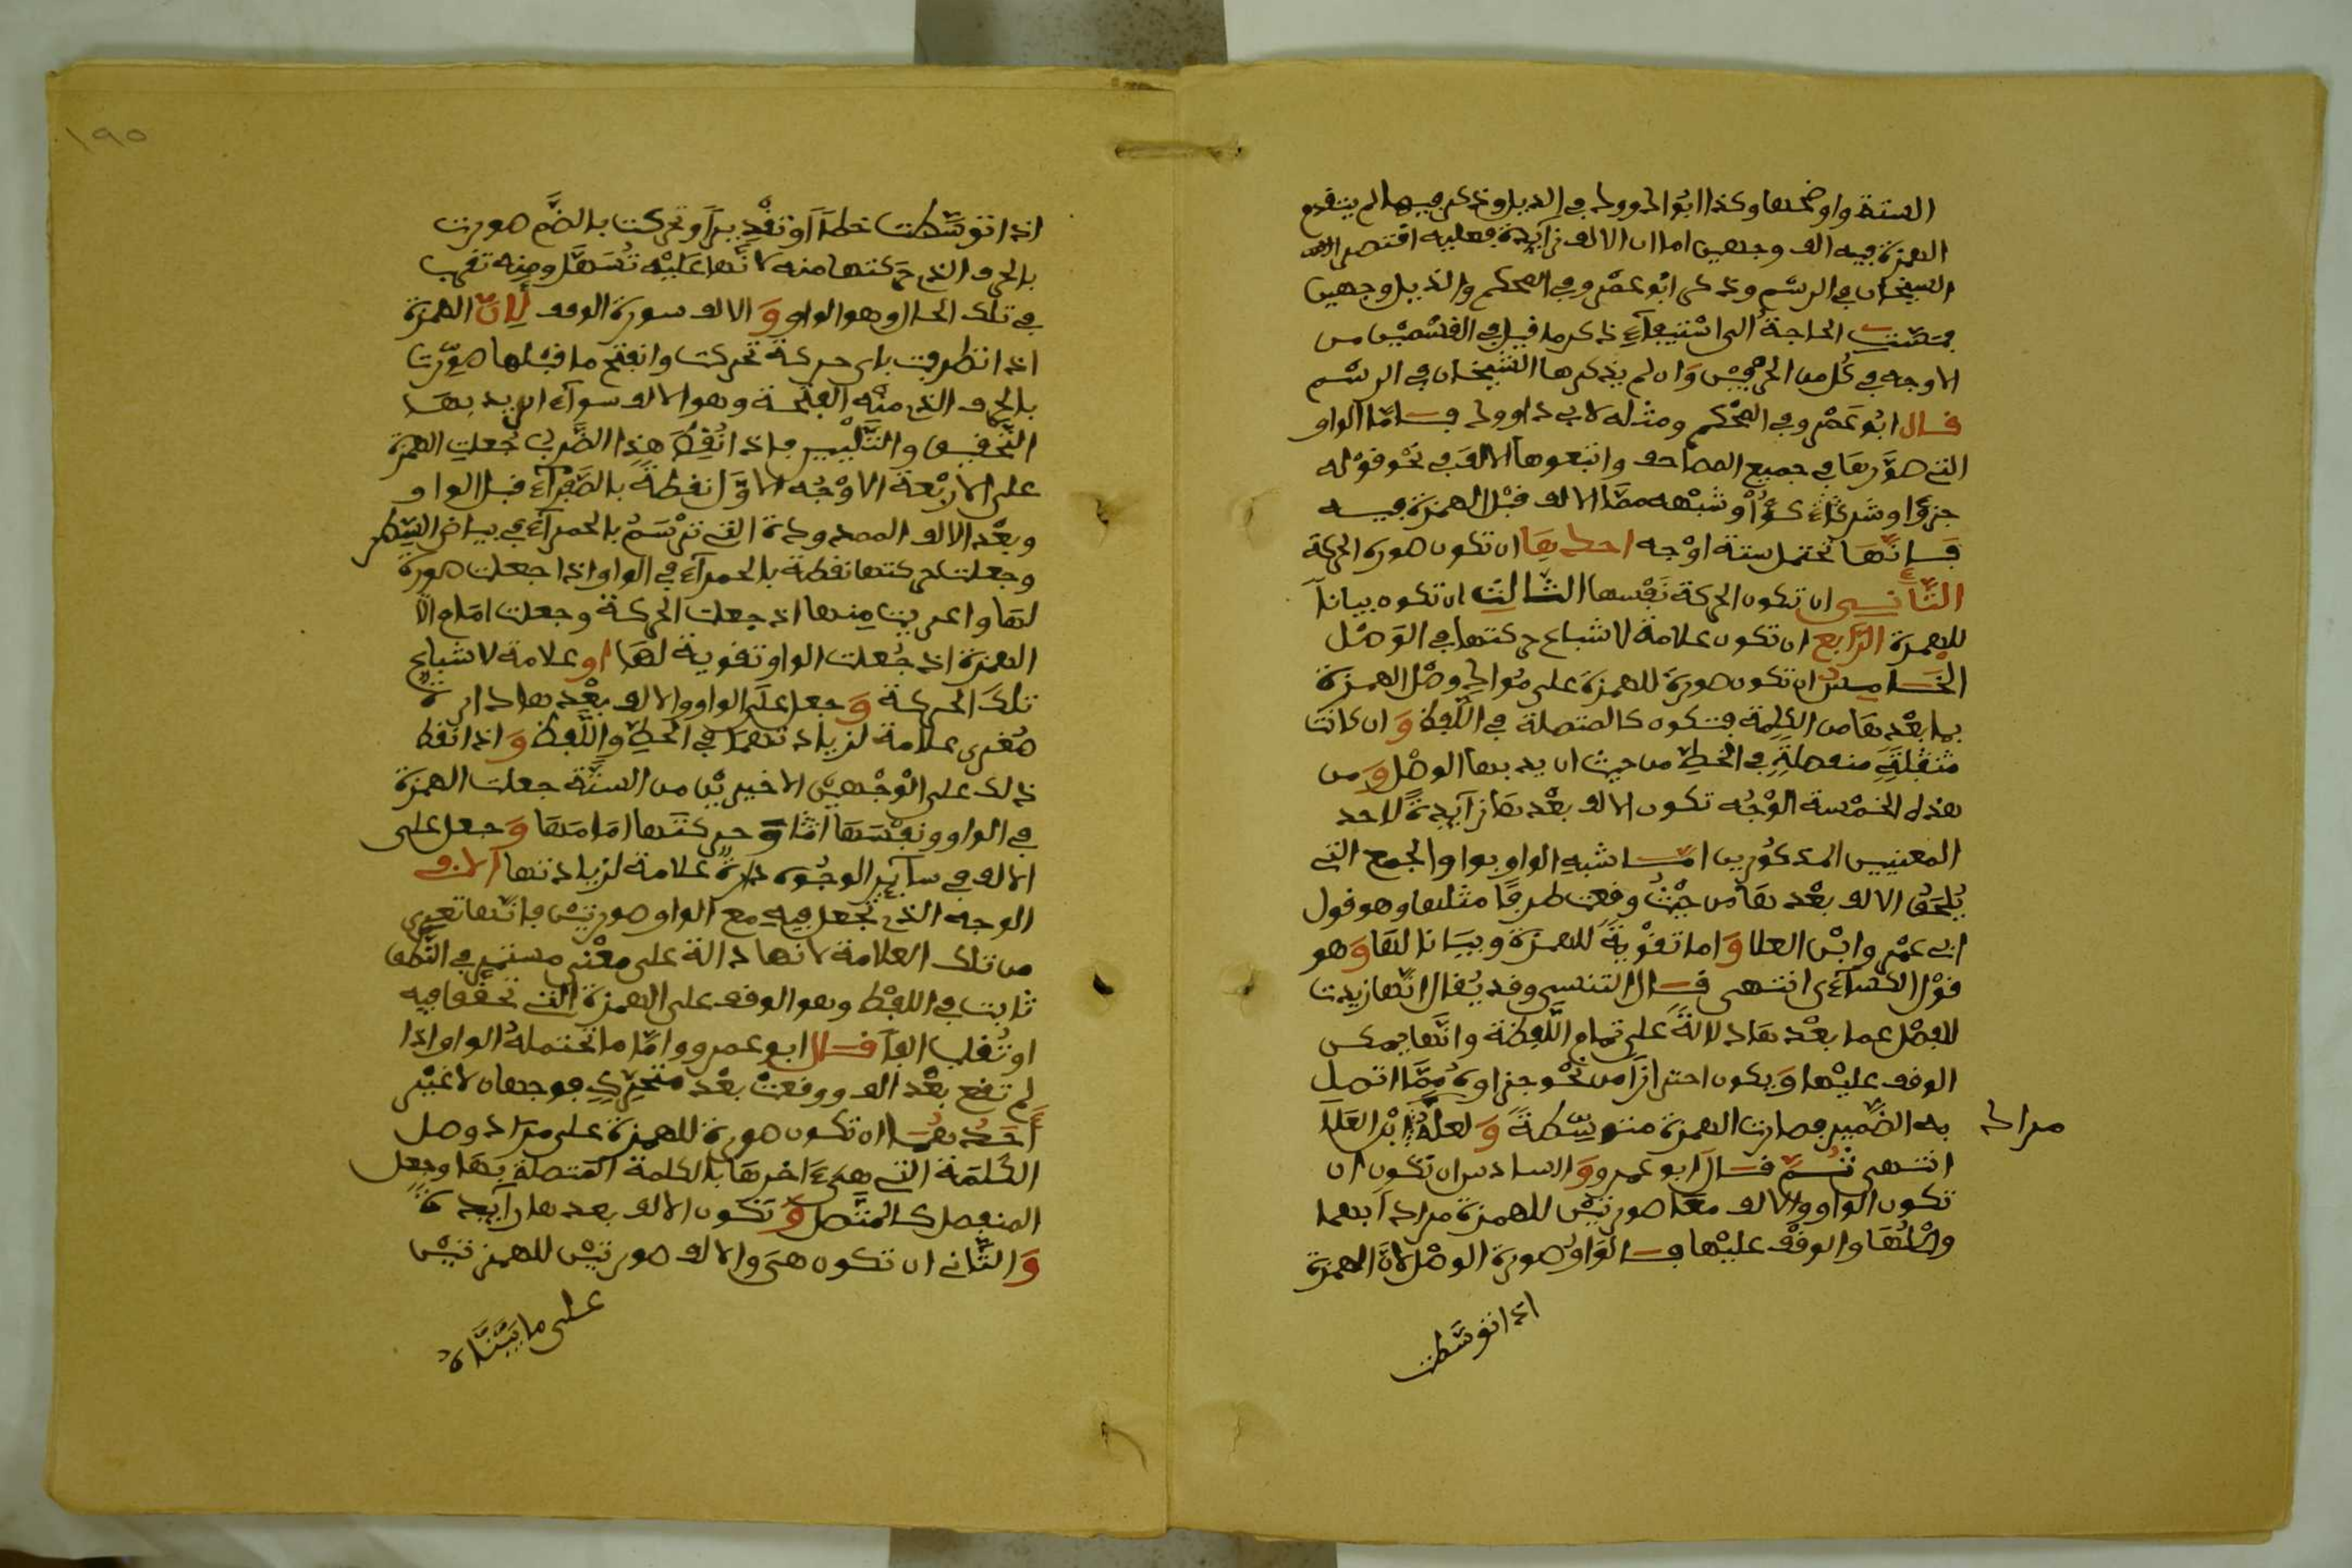 الستة واوضحها وكذا ابوا داوود في الذيل وذكر فيها لم يتقدم
الهمزة فيه الف وجهين اما ان الالف زايدة فعليه اقتصر
الشيخان في الرسم وذكر ابو عمرو في المحكم والذيل وجهين
فمست الحاجة الى استيفاء ذكر ما قيل في القسمين من
الاوجه في كل من الحرفين وان لم يذكرها الشيخان في الرسم
قال ابو عمرو في المحكم ومثله لابي داوود فاما الواو
التي صورها في جميع المصاحف واتبعوها الالف في نحو قوله
جزؤا وشركؤا وشبهه مما الالف قبل الهمزة فيه
فانها تحتمل ستة اوجه احدها ان تكون صورة الحركة
الثاني ان تكون الحركة نفسها الثالث ان تكون بيانا
للهمزة الرابع ان تكون علامة لاشباع حركتها في الوصل
الخامس ان تكون صورة للهمزة على مراد وصل الهمزة
بما بعدها من الكلمة فتكون كالمتصلة في اللفظ وان كانت
منفصلة في الخط من حيث اريد بها الوصل ومن
هذه الخمسة الاوجه تكون الالف بعدها زايدة لاحد
المعنيين المذكورين اما شبه الواو بواو الجمع التي
يلحق الالف بعدها من حيث وقعت طرفا مثلها وهو قول
ابي عمرو ابن العلا واما تقوية للهمزة وبيانا لها وهو
قول الكسآءي انتهى قال التنسي وقد يقال انها زيدت
للفصل عما بعدها دلالة على تمام اللفظة وانها يمكن
الوقف عليها ويكون احترازا من نحو جزاوه مما اتصل
به الضمير فصارت الهمزة متوسطة ولعله ابن العلا
انتهى ثم قال ابو عمرو والسادس ان تكون ان
تكون الواو والالف معا صورتين للهمزة مرادا بهما
وصلها والوقف عليها فالواو صورة الوصل لان الهمزة
مراد
اذا توسطت
١٩٥
اذا توسطت خطا او تقديرا وتحركت بالضم صورت
بالحرف الذي حركتها منه لانها عليه تسهل ومنه تقرب
في تلك الحال وهو الواو والالف سورة الوقف لان الهمزة
اذا تطرفت باي حركة تحركت وانفتح ما قبلها صورت
بالحرف الذي منه الفتحة وهو الالف سوآء اريد بها
التحقيق والتليين فاذا نقط هذا الضرب جعلت الهمزة
على الاربعة الاوجه الاول نقطة بالصفرآء قبل الواو
وبعد الالف الممدودة التي ترسم بالحمرآء في بياض السطر
وجعلت حركتها نقطة بالحمرآء في الواو اذا جعلت صورة
لها واعريت منها اذ جعلت الحركة وجعلت امام
الهمزة اذ جعلت الواو تقوية لها او علامة لاشباع
تلك الحركة وجعل على الواو والالف بعدها دارة
صغرى علامة لزيادتهما في الخط واللفظ واذا نقط
ذلك على الوجهين الاخيرين من الستة جعلت الهمزة
في الواو ونفسها حركتها امامها وجعل على
الالف في سآير الوجوه دارة علامة لزيادتها الا في
الوجه الذي تجعل فيه مع الواو صورتين فانها تعرى
من تلك العلامة لانها دالة على معنى مستمر في النطق
ثابت في اللفظ وهو الوقف على الهمزة التي تحقق فيه
او تقلب الفا قال ابو عمرو واما ما تحتمله الواو اذا
لم تقع بعد الف ووقعت بعد متحرك فوجهان لا غير
احدهما ان تكون صورة للهمزة على مراد وصل
الكلمة التي هي ءاخرها بالكلمة المتصلة بها وجعل
المنفصل كالمتصل وتكون الالف بعدها زآيدة
والثاني ان تكون هي والالف صورتين للهمزتين
على ما بيناه